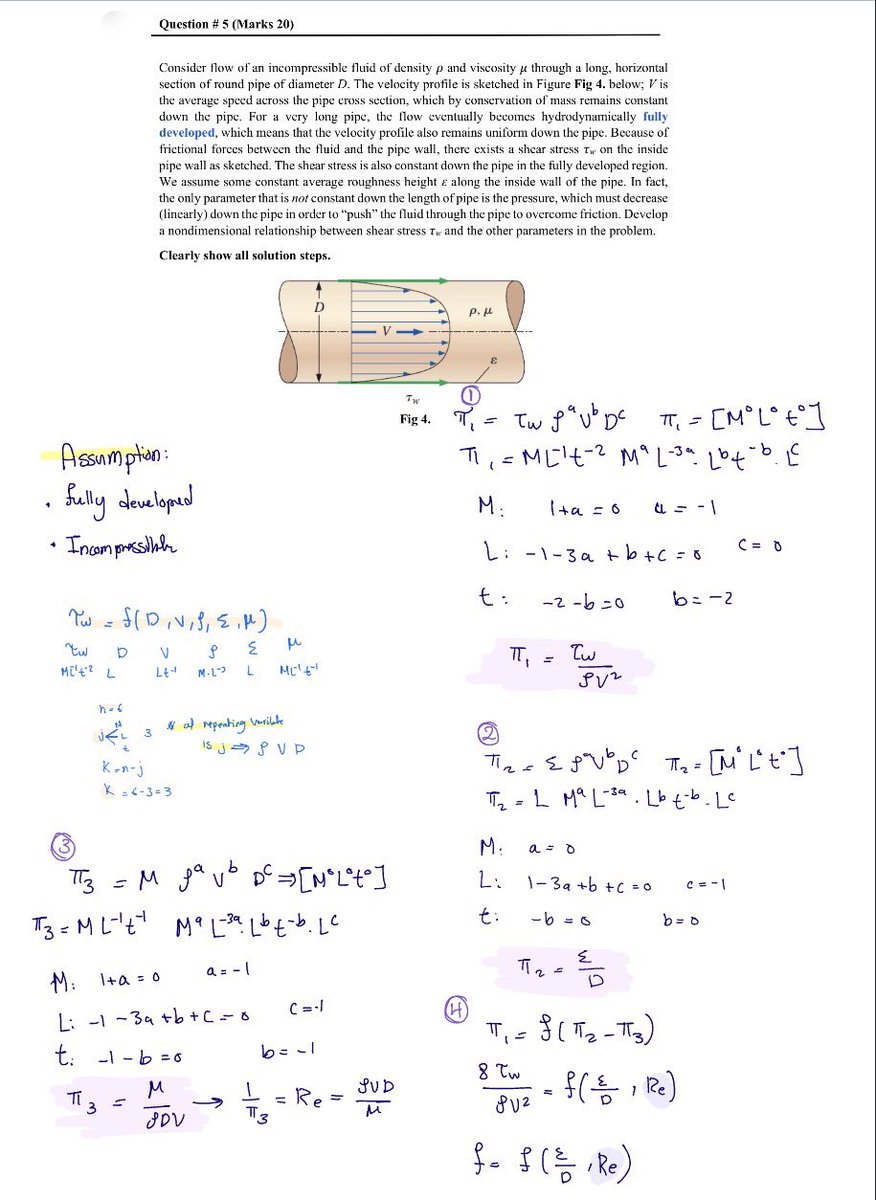 Question # 5 (Marks 20)
Consider flow of an incompressible fluid of density ρ and viscosity μ through a long, horizontal
section of round pipe of diameter D. The velocity profile is sketched in Figure Fig 4. below; V is
the average speed across the pipe cross section, which by conservation of mass remains constant
down the pipe. For a very long pipe, the flow eventually becomes hydrodynamically fully
developed, which means that the velocity profile also remains uniform down the pipe. Because of
frictional forces between the fluid and the pipe wall, there exists a shear stress τw on the inside
pipe wall as sketched. The shear stress is also constant down the pipe in the fully developed region.
We assume some constant average roughness height ε along the inside wall of the pipe. In fact,
the only parameter that is not constant down the length of pipe is the pressure, which must decrease
(linearly) down the pipe in order to “push” the fluid through the pipe to overcome friction. Develop
a nondimensional relationship between shear stress τw and the other parameters in the problem.
Clearly show all solution steps.
D
V
ρ, μ
ε
τw
Fig 4.
Assumption:
• fully developed
• Incompressible
τw = f(D, V, ρ, ε, μ)
τw D V ρ ε μ
ML⁻¹t⁻² L Lt⁻¹ M.L⁻³ L ML⁻¹t⁻¹
n=6
j M L t 3
# of repeating varible
is j ⇒ ρ V D
K=n-j
K=6-3=3
①
π₁ = τw ρᵃ Vᵇ Dᶜ π₁ = [M⁰L⁰t⁰]
π₁ = ML⁻¹t⁻² Mᵃ L⁻³ᵃ. Lᵇt⁻ᵇ. Lᶜ
M: 1+a=0 a=-1
L: -1-3a+b+c=0 c=0
t: -2-b=0 b=-2
π₁ = τw/ρV²
②
π₂ = ε ρᵃVᵇDᶜ π₂ = [M⁰L⁰t⁰]
π₂ = L Mᵃ L⁻³ᵃ. Lᵇ t⁻ᵇ. Lᶜ
M: a=0
L: 1-3a+b+c=0 c=-1
t: -b=0 b=0
π₂ = ε/D
③
π₃ = μ ρᵃ Vᵇ Dᶜ ⇒ [M⁰L⁰t⁰]
π₃ = ML⁻¹t⁻¹ Mᵃ L⁻³ᵃ. Lᵇt⁻ᵇ. Lᶜ
M: 1+a=0 a=-1
L: -1-3a+b+c=0 c=-1
t: -1-b=0 b=-1
π₃ = μ/ρDV → 1/π₃ = Re = ρVD/μ
④
π₁ = f(π₂-π₃)
8τw/ρV² = f(ε/D, Re)
f = f(ε/D, Re)